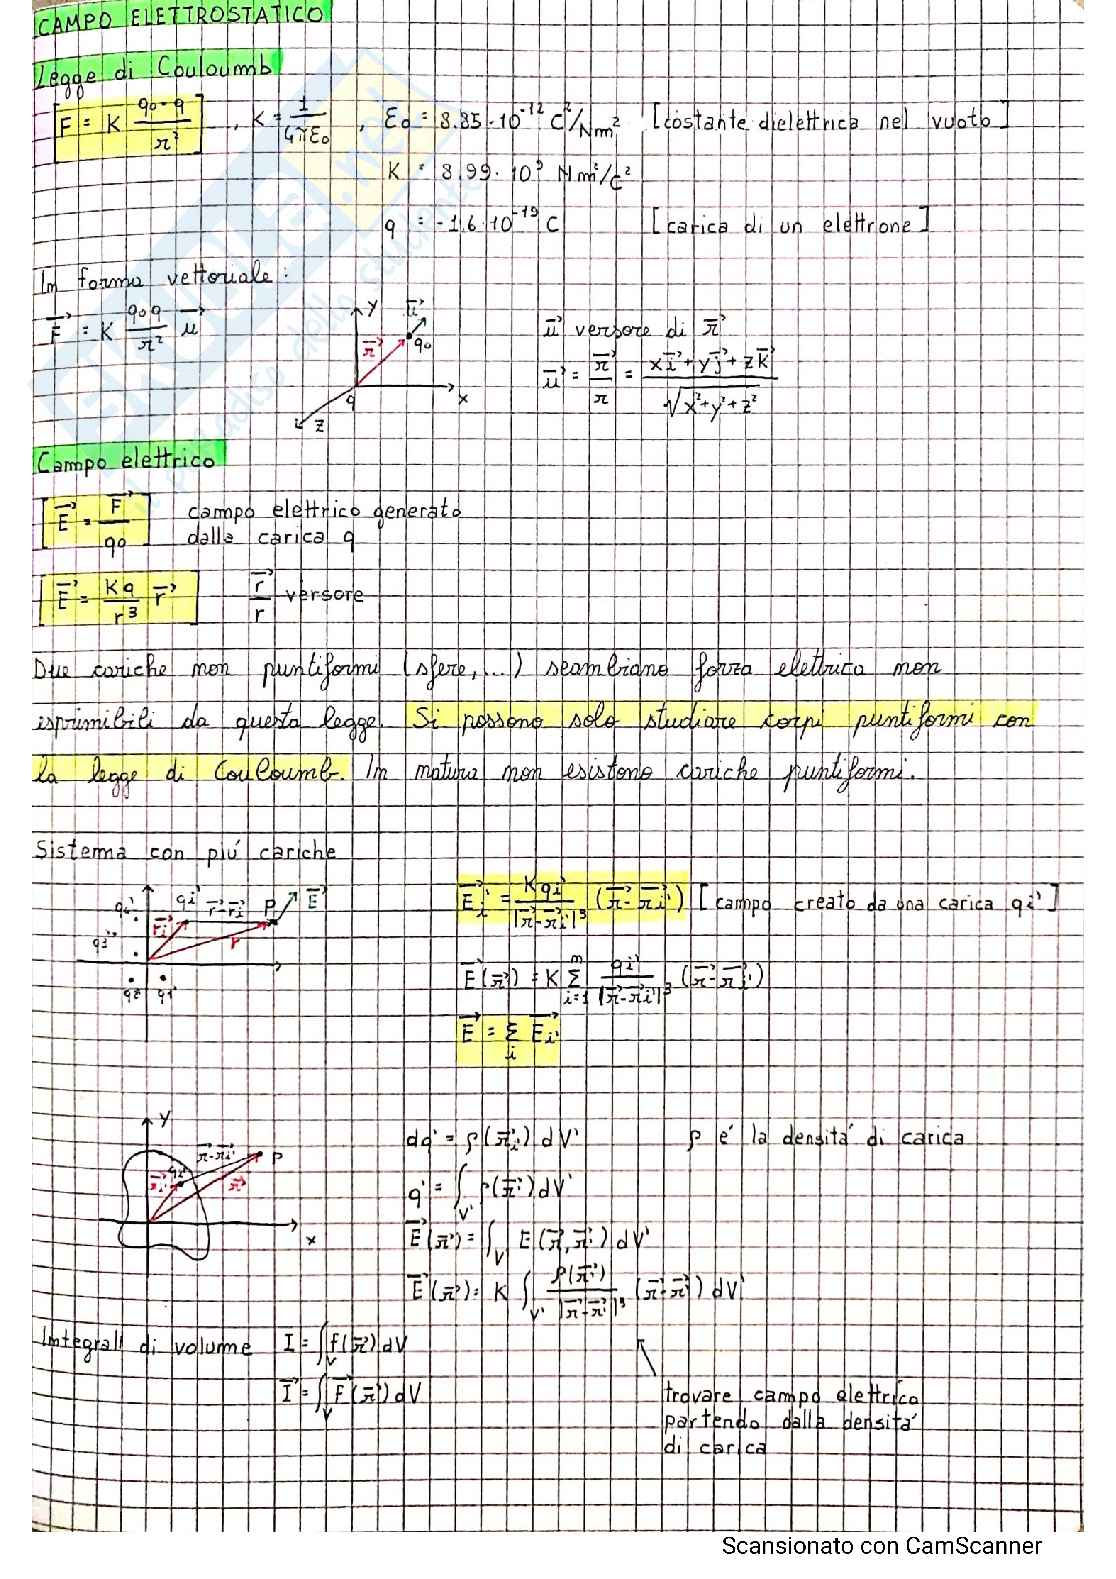 CAMPO ELETTROSTATICO
Legge di Couloumb
[F = K q0·q / r²] , K = 1 / 4πε0 , ε0 = 8.85·10⁻¹² C²/Nm² [costante dielettrica nel vuoto]
K = 8.99·10⁹ Nm²/C²
q = -1.6·10⁻¹⁹ C [carica di un elettrone]
In forma vettoriale:
F⃗ = K q0q / r² u⃗
y u⃗ q0 r⃗ q x z
u⃗ versore di r⃗
u⃗ = r⃗ / r = x i⃗ + y j⃗ + z k⃗ / √x²+y²+z²
Campo elettrico
[E⃗ = F⃗ / q0] campo elettrico generato
dalla carica q
[E⃗ = Kq / r³ r⃗] r⃗ / r versore
Due cariche non puntiformi (sfere,...) scambiano forza elettrica non
esprimibili da questa legge. Si possono solo studiare corpi puntiformi con
la legge di Couloumb. In natura non esistono cariche puntiformi.
Sistema con più cariche
qi' r⃗-r⃗i P E⃗
r⃗i r
q3' q2' q1'
E⃗i' = Kqi' / |r⃗-r⃗i'|³ (r⃗-r⃗i') [campo creato da una carica qi']
E⃗(r⃗) = K Σ i=1 n qi' / |r⃗-r⃗i'|³ (r⃗-r⃗i')
E⃗ = Σ i E⃗i'
y r⃗-r⃗i' P qi' r⃗i' r⃗ x
dq' = ρ(r⃗i') dV' ρ è la densità di carica
q' = ∫V' ρ(r⃗') dV'
E⃗(r⃗) = ∫V E(r⃗,r⃗') dV'
E⃗(r⃗) = K ∫V' ρ(r⃗') / |r⃗-r⃗'|³ (r⃗-r⃗') dV'
Integrali di volume I = ∫V f(r⃗) dV
I⃗ = ∫V F⃗(r⃗) dV
trovare campo elettrico
partendo dalla densità
di carica
Scansionato con CamScanner